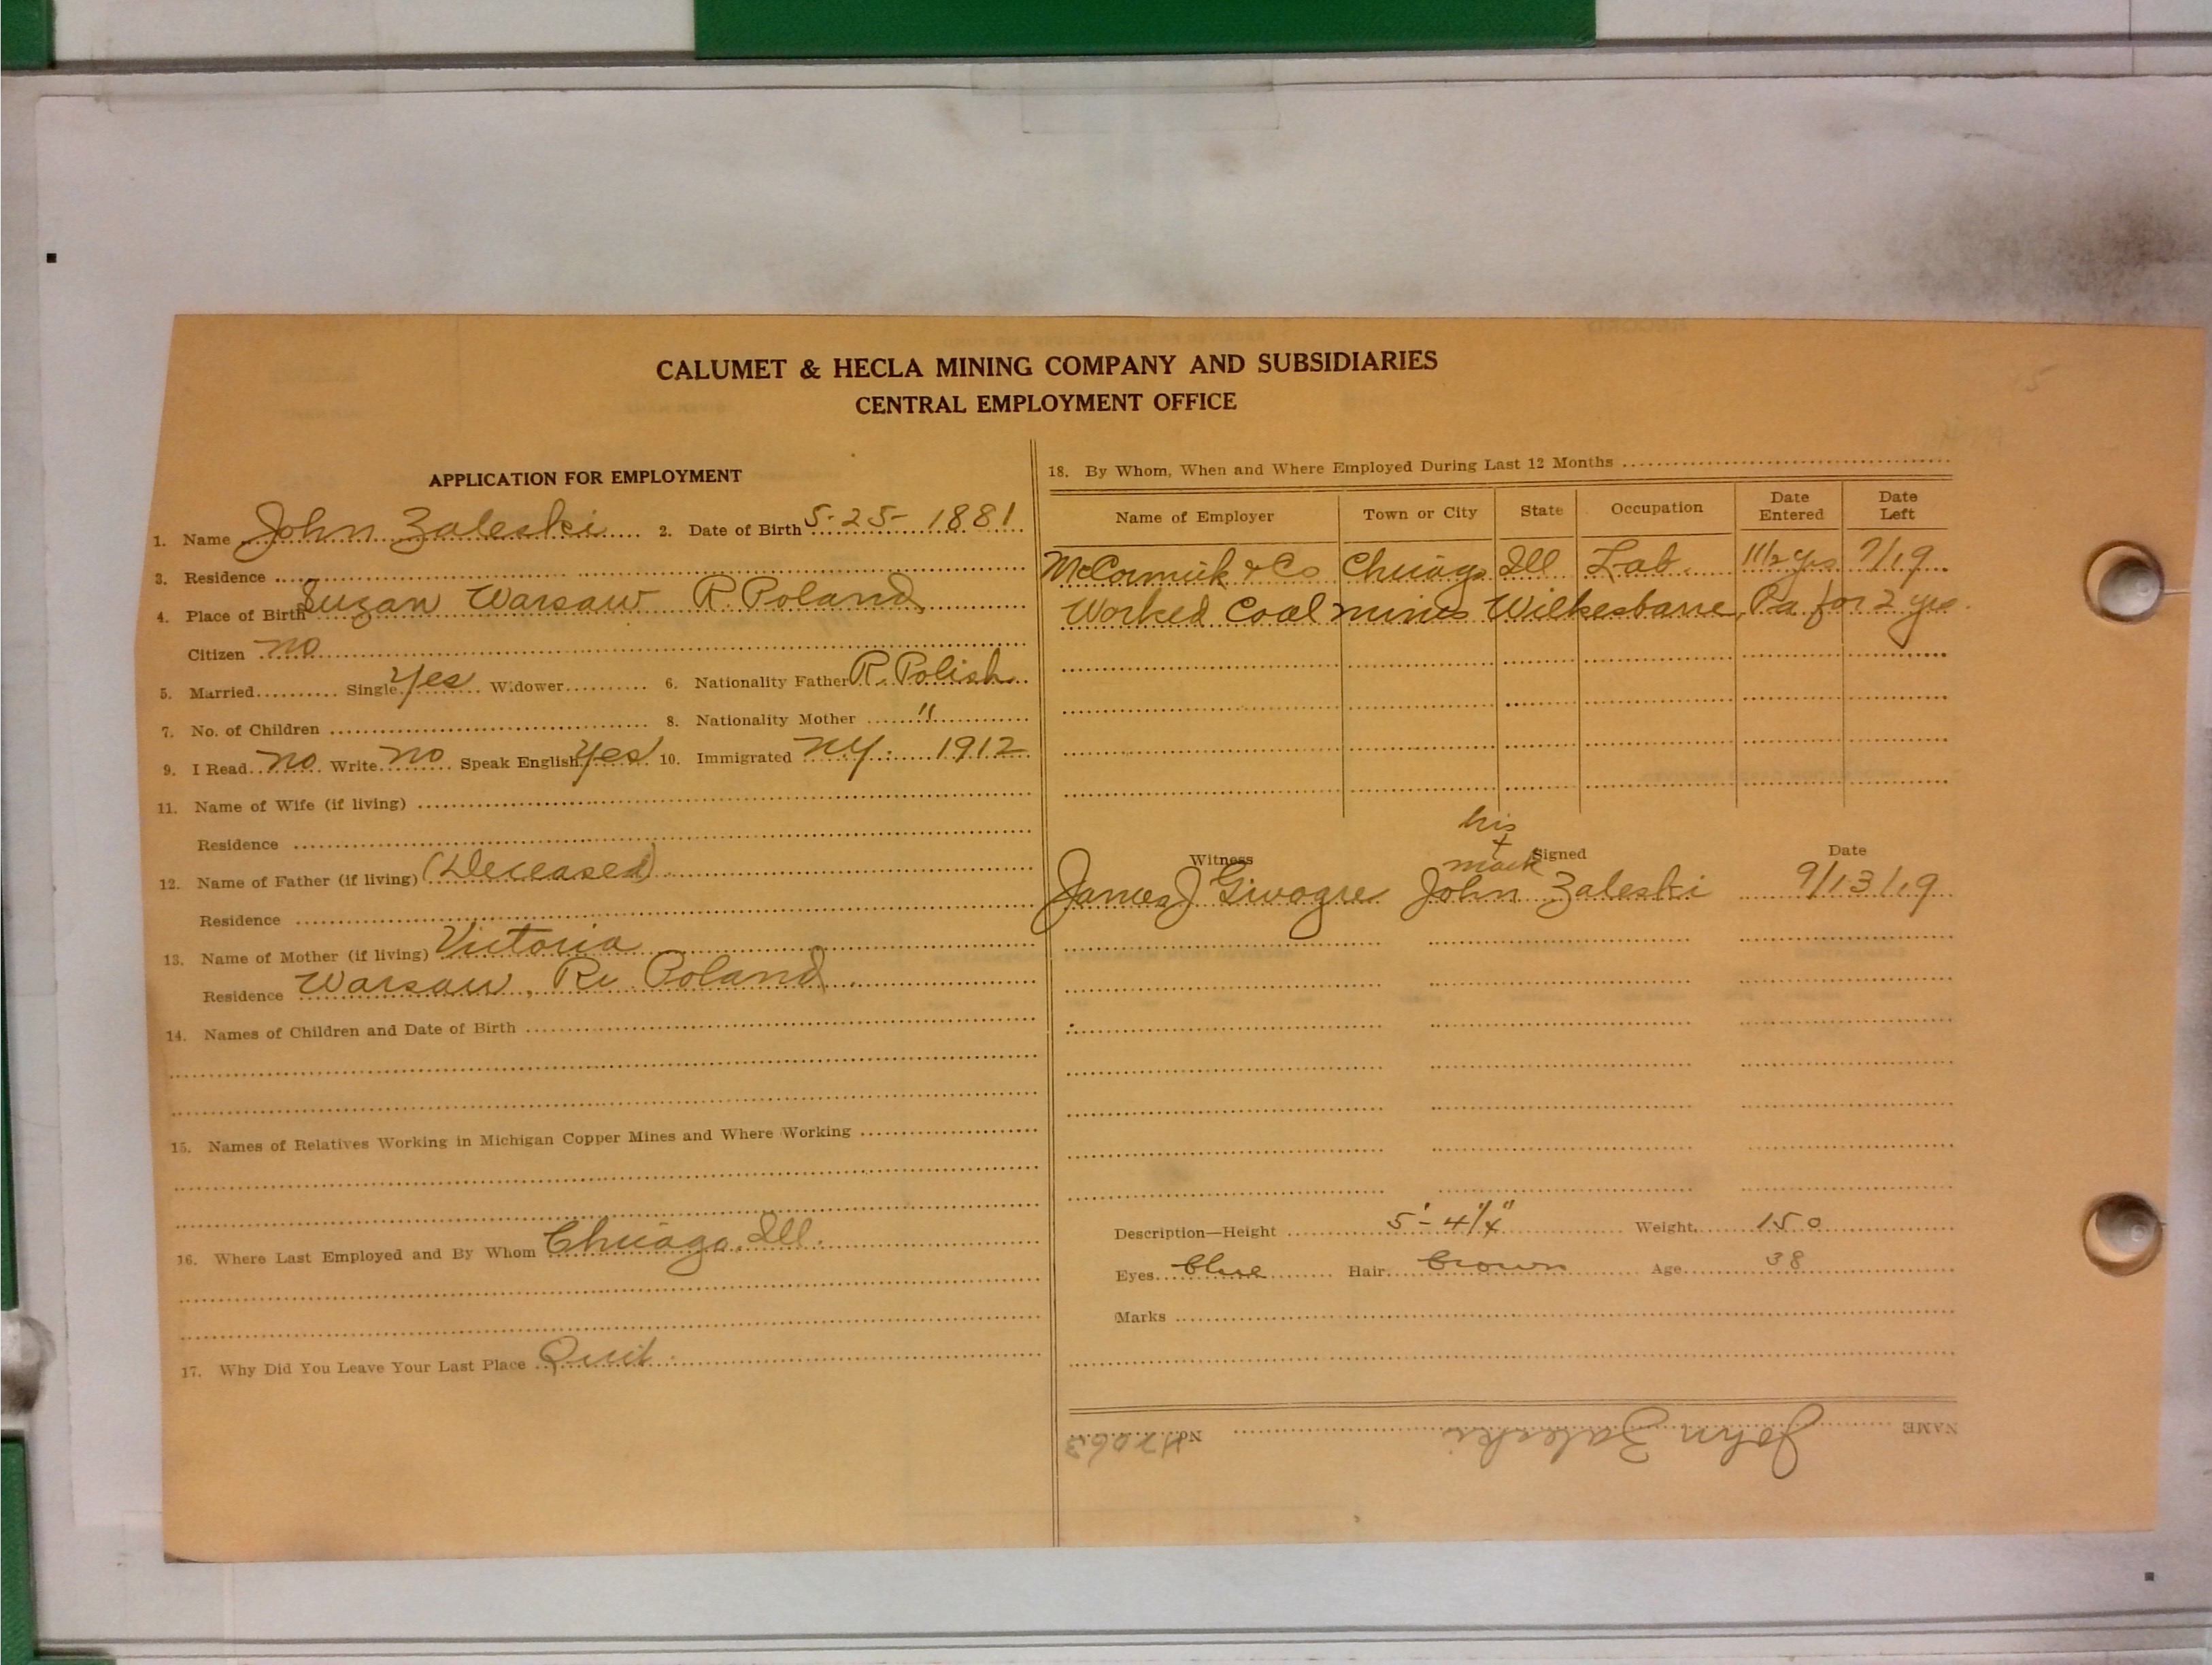 CALUMET & HECLA MINING COMPANY AND SUBSIDIARIES
CENTRAL EMPLOYMENT OFFICE
APPLICATION FOR EMPLOYMENT
1. Name John Zaleski 2. Date of Birth 5-25-1881
3. Residence
4. Place of Birth Suzan Warsaw R. Poland
Citizen no
5. Married Single yes Widower 6. Nationality Father R. Polish
7. No. of Children 8. Nationality Mother "
9. I Read no Write no Speak English yes 10. Immigrated NY. 1912
11. Name of Wife (if living)
Residence
12. Name of Father (if living) (Deceased)
Residence
13. Name of Mother (if living) Victoria
Residence Warsaw, Ru Poland
14. Names of Children and Date of Birth
15. Names of Relatives Working in Michigan Copper Mines and Where Working
16. Where Last Employed and By Whom Chicago, Ill.
17. Why Did You Leave Your Last Place Quit
18. By Whom, When and Where Employed During Last 12 Months
Name of Employer Town or City State Occupation Date Entered Date Left
McCormick & Co Chicago Ill Lab. 1 1/2 yrs 7/19
Worked Coal mines Wilkesbarre, Pa for 2 yrs.
his
+
mark
Witness Signed Date
James J John Zaleski 9/13/19
Description—Height 5'-4 1/4" Weight 150
Eyes blue Hair brown Age 38
Marks
NAME John Zaleski No. 42063